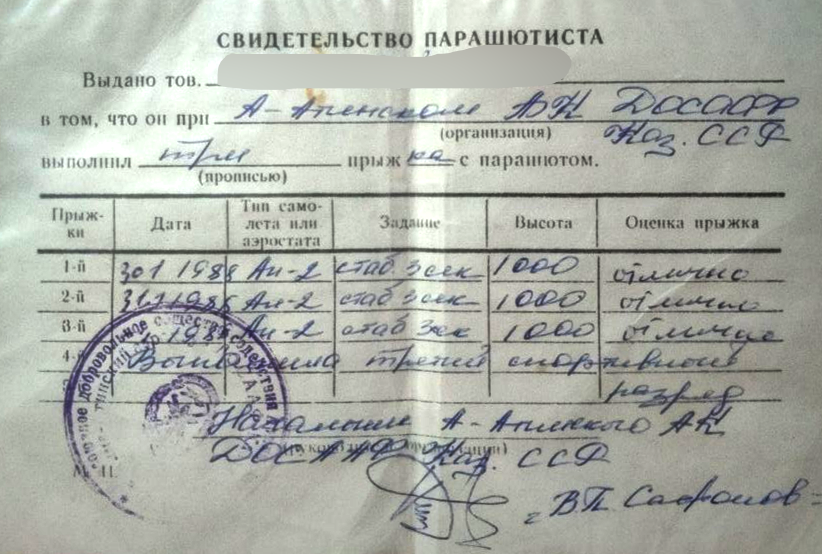 СВИДЕТЕЛЬСТВО ПАРАШЮТИСТА
Выдано тов.
в том, что он при А-Атинском АК ДОСААФ
(организация) Каз. ССР
выполнил три прыжка с парашютом.
(прописью)
Прыж-ки Дата Тип само-лета или аэростата Задание Высота Оценка прыжка
1-й Ан-2 стаб 3 сек 1000 отлично
2-й Ан-2 стаб 3 сек 1000 отлично
3-й Ан-2 стаб 3 сек 1000 отлично
4-й Выполнила третий спортивный
разряд
Начальник А-Атинского АК
ДОСААФ Каз. ССР
В.П.
добровольное общество содействия